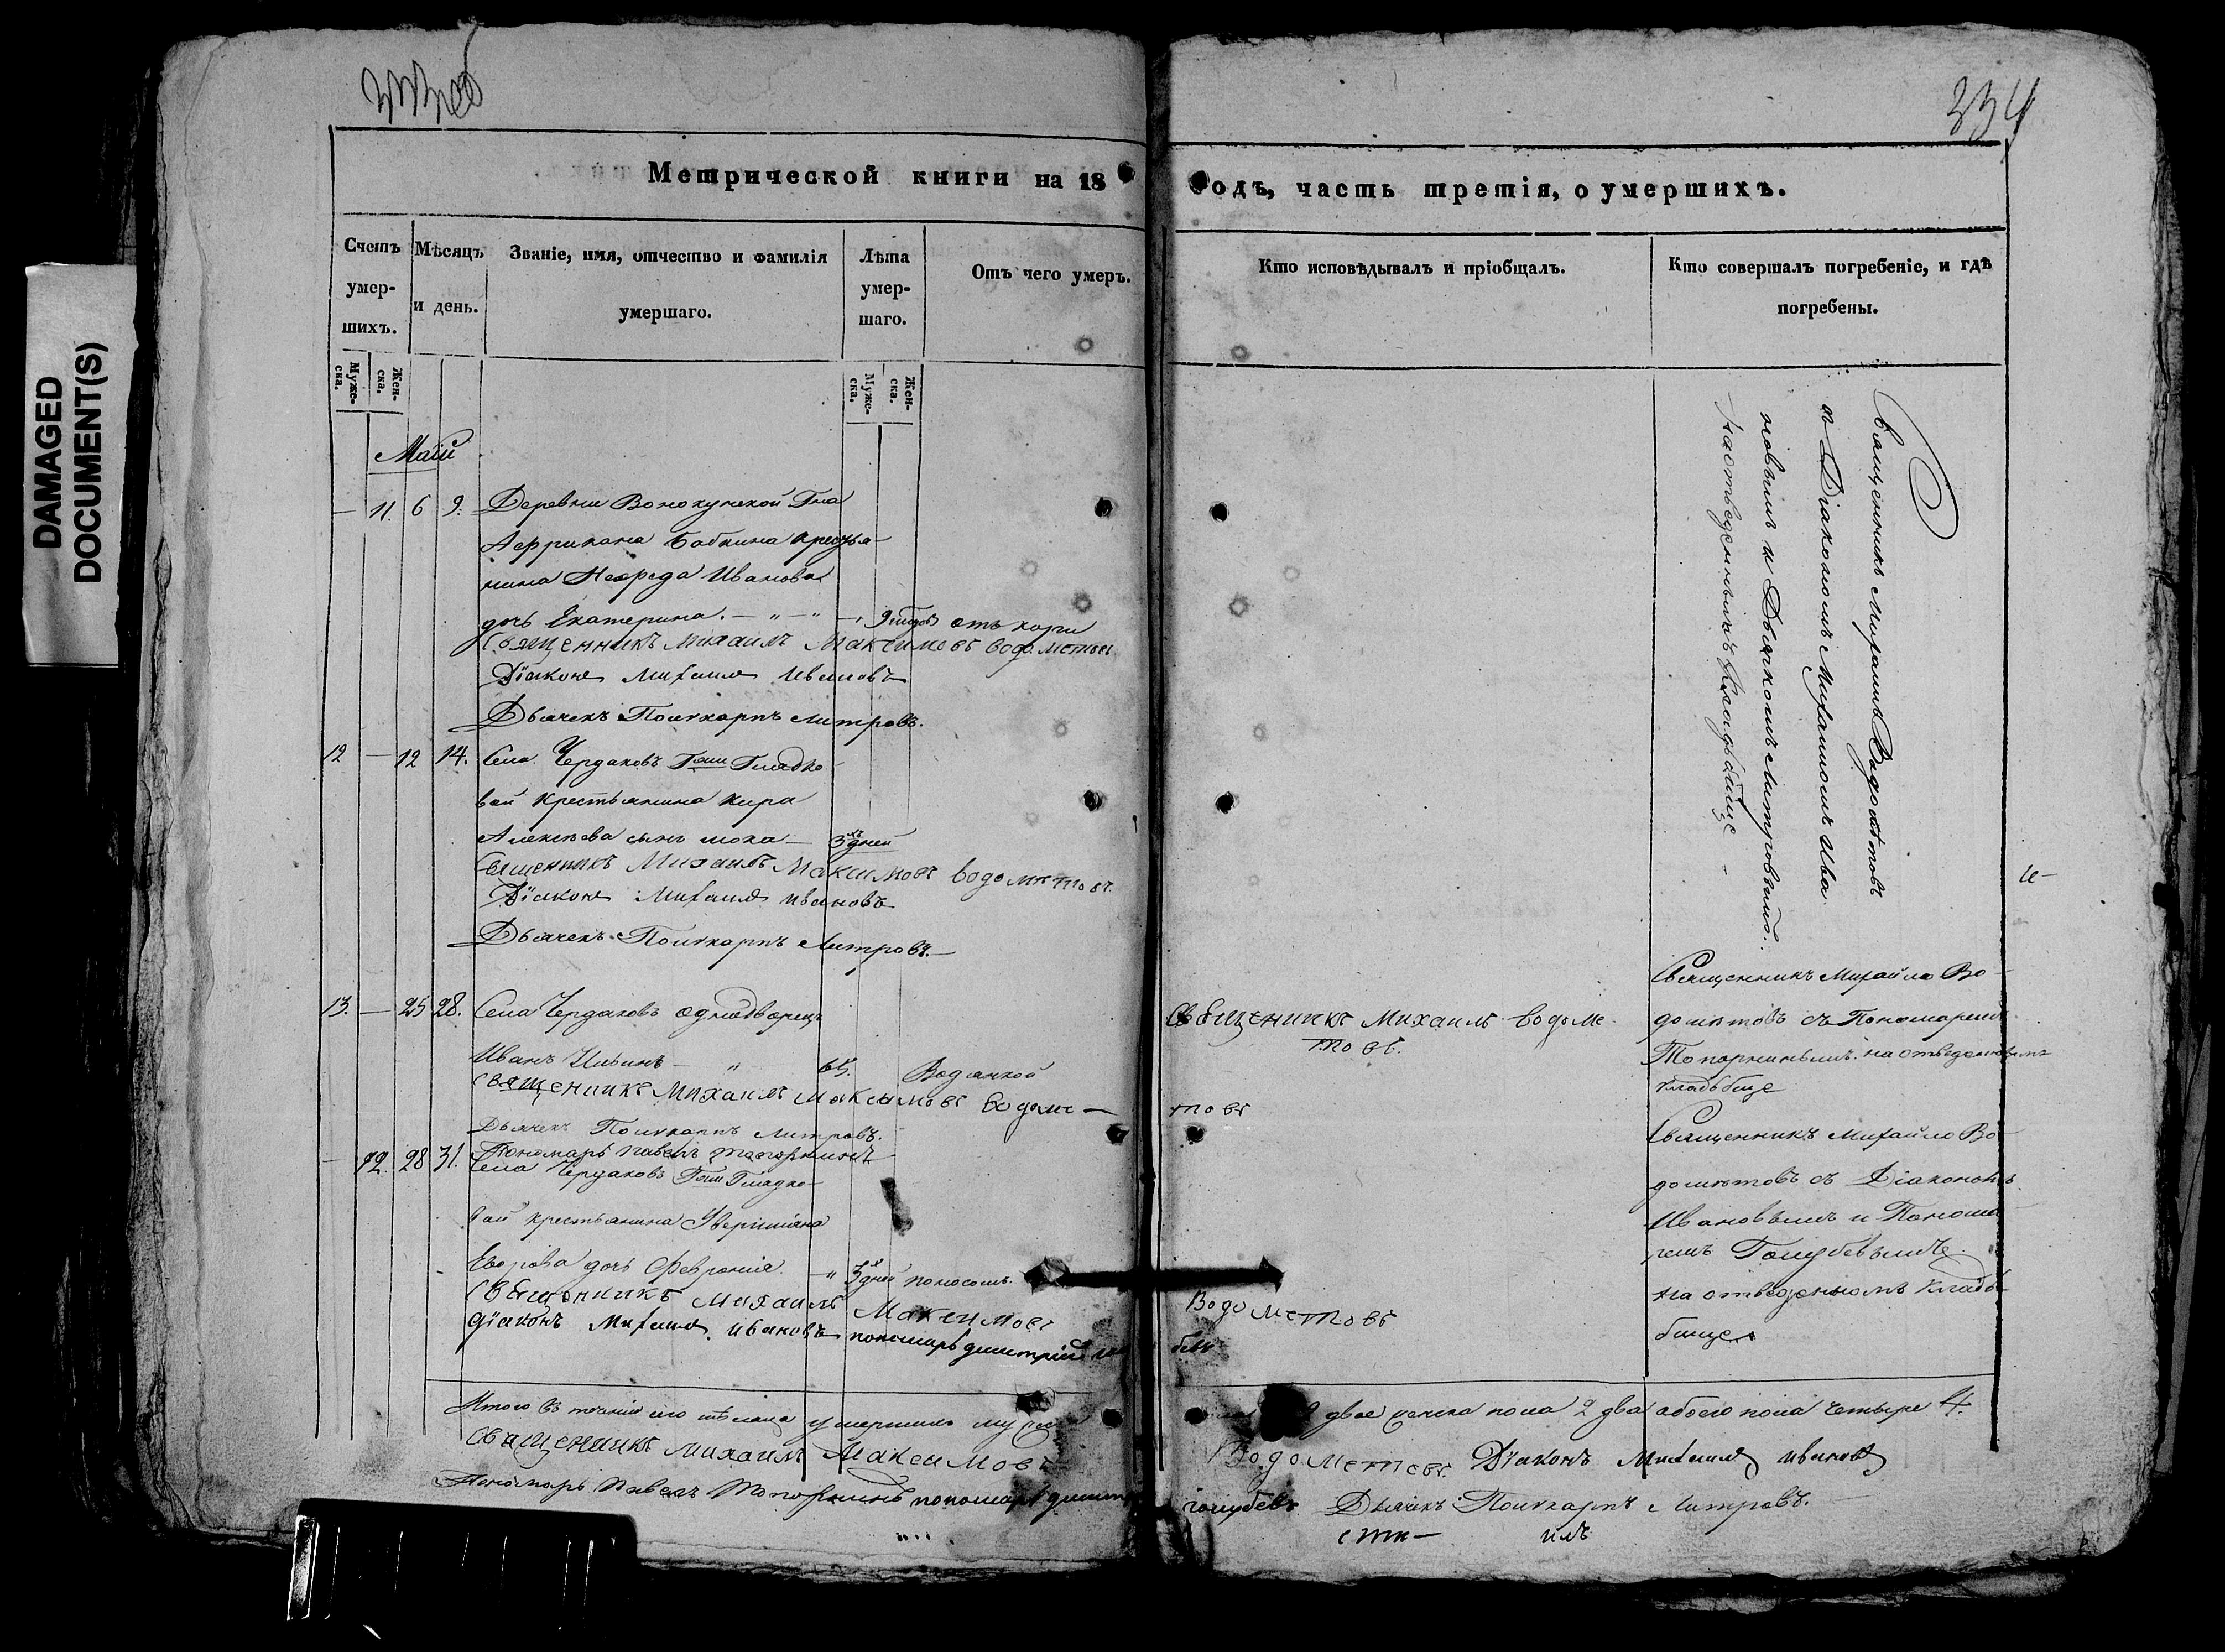 DAMAGED
DOCUMENT(S)
334
Метрической книги на 18
одъ, часть третія, о умершихъ.
Счетъ умер-шихъ.
Муже-ска.
Жен-ска.
Мѣсяцъ и день.
Званіе, имя, отчество и фамилія умершаго.
Лѣта умер-шаго.
Муже-ска.
Жен-ска.
Отъ чего умеръ.
Кто исповѣдывалъ и пріобщалъ.
Кто совершалъ погребеніе, и гдѣ погребены.
Маій
— 11. 6 9. Деревни
Африкана Бабкина крестья-
нина Иванова
дочь Екатерина. — " — " — 9 отъ кори
Священникъ Михаилъ Максимовъ Водометовъ
Діаконъ Михаилъ Ивановъ
Дьячекъ Поликарпъ Митровъ.
Священникъ Михаилъ Водометовъ
съ Діакономъ Михаиломъ Ива
новымъ и Дьячкомъ Митровымъ.
на отведенномъ кладбище —
12 — 12 14. Села Чердаковъ Гжи Гладко
вой крестьянина Кира
Алексѣева сынъ — 3 дней
Священникъ Михаилъ Максимовъ Водометовъ
Діаконъ Михаилъ Ивановъ
Дьячекъ Поликарпъ Митровъ. —
13. — 25 28. Села Чердаковъ однодворецъ
Иванъ Ильинъ — " 65. Водянкой
Священникъ Михаилъ Максимовъ Водоме —
товъ
Дьячекъ Поликарпъ Митровъ.
Пономарь Павелъ Топорнинъ
Священникъ Михаилъ Водоме-
товъ.
Священникъ Михайло Во-
дометовъ съ Пономаремъ
Топорнинымъ. на отведенномъ
кладбще
— 12. 28 31. Села Чердаковъ Гжи Гладко-
вой крестьянина
Егорова дочь Февронія. — " 3 дней поносомъ.
Священникъ Михаилъ Максимовъ
Водометовъ
діаконъ Михаилъ Ивановъ пономарь Димитрій
бевъ
Священникъ Михайло Во-
дометовъ съ Діакономъ
Ивановымъ и Понома
ремъ Голубевымъ.
на отведенномъ кладб-
бище
Итого въ теченіи сего мѣсяца умершихъ
2 двое женска пола 2 два обоего пола четыре 4.
Священникъ Михаилъ Максимовъ
Водометовъ. Діаконъ Михаилъ Ивановъ
Пономарь Павелъ Топорнинъ пономарь
голубевъ Дьячекъ Поликарпъ Митровъ.